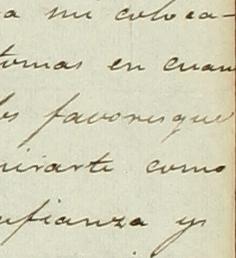 a mi coloca-
tomas en cuan
los favores que
mirarte como
nfianza y